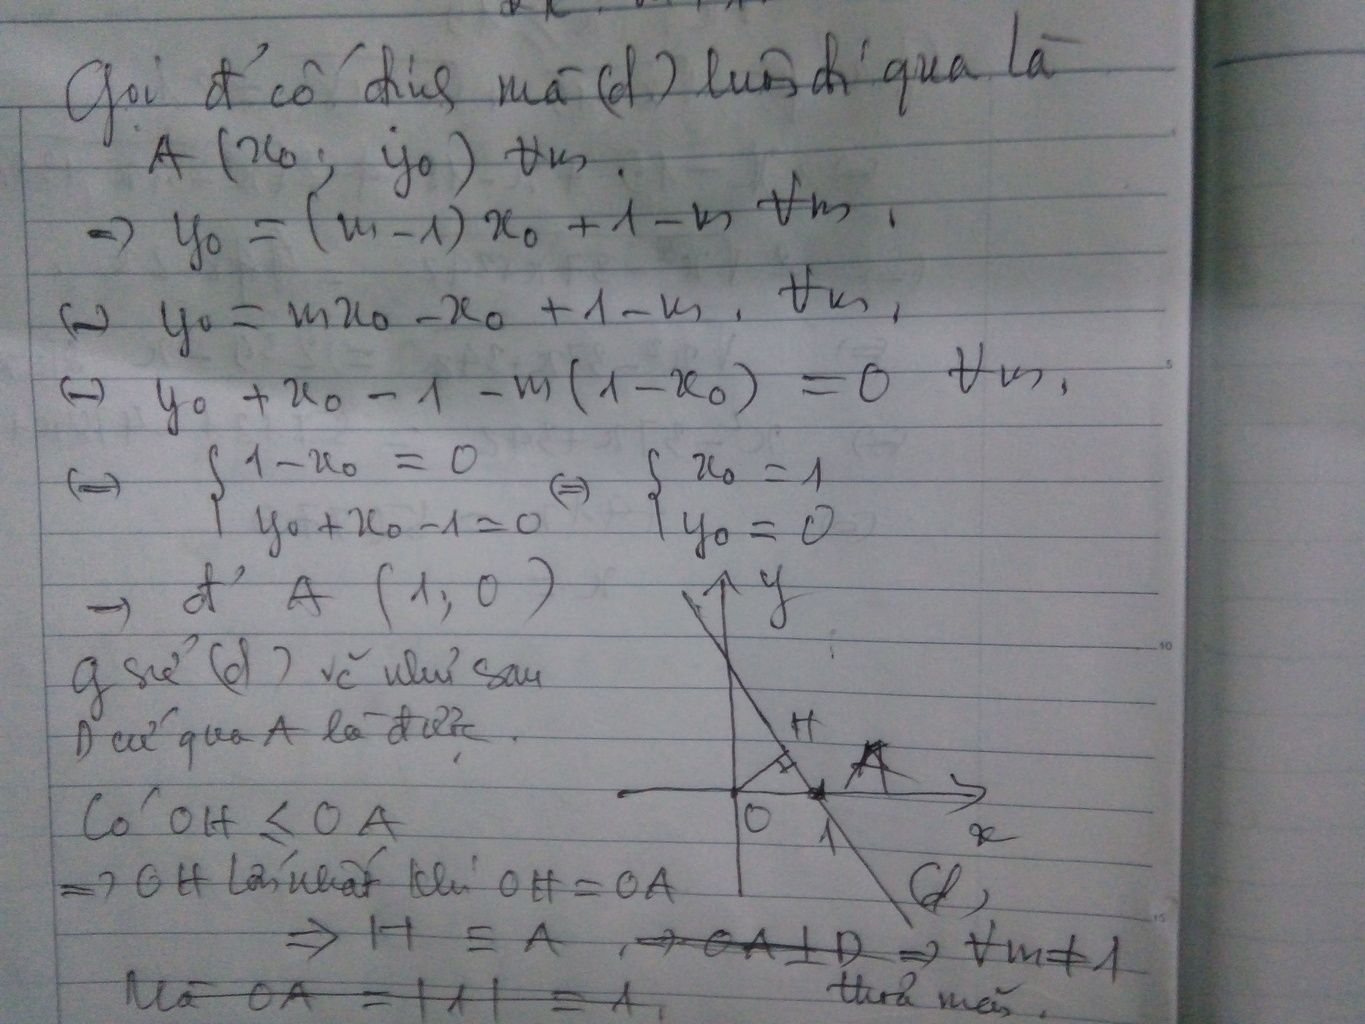 Gọi đ' cố định mà (d) luôn đi qua là
A (x₀; y₀) ∀m.
=> y₀ = (m-1) x₀ + 1 - m ∀m.
<=> y₀ = mx₀ - x₀ + 1 - m, ∀m.
<=> y₀ + x₀ - 1 - m(1 - x₀) = 0 ∀m.
<=> { 1 - x₀ = 0 y₀ + x₀ - 1 = 0 <=> { x₀ = 1 y₀ = 0
-> đ' A (1; 0)
y
g sử (d) vẽ như sau
D cứ qua A là được.
H
A
O
1
x
(d)
Có OH ≤ OA
=> OH lớn nhất khi OH = OA
=> H ≡ A, -> OA ⊥ D => ∀m ≠ 1
Mà OA = |1| = 1. thoả mãn.